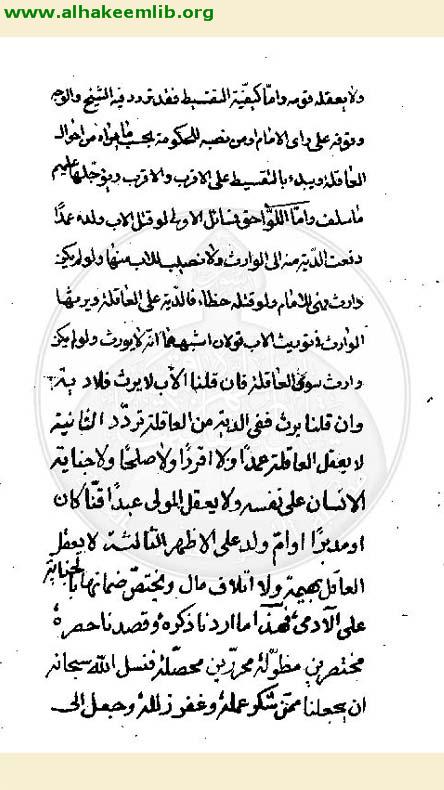 www.alhakeemlib.org
ولا يعقله قومه واما كيفية التقسيط فقد تردد فيه الشيخ والوجه
وقوفه على راى الامام او من نصبه للحكومة بحسب ما يراه من احوال
العاقلة ويبدء بالتقسيط على الاقرب والاقرب ويؤجلها عليهم
ما سلف واما اللواحق فمسائل الاولى لو قتل الاب ولده عمدا
دفعت الدية منه الى الوارث ولا نصيب للاب منها ولو لم يكن
وارث فهى للامام ولو قتله خطاء فالدية على العاقلة ويرثها
الوارث فى توريث الاب قولان اشبههما انه لا يورث ولو لم يكن
وارث سوى العاقلة فان قلنا الأب لا يرث فلا دية
وان قلنا يرث ففى الدية من العاقلة تردد الثانية
لا يعقل العاقلة عمدا ولا اقرارا ولا صلحا ولا جناية
الانسان على نفسه ولا يعقل المولى عبدا قنا كان
او مدبرا او ام ولد على الاظهر الثالثة لا يعقل
العاقل بهيمة ولا اتلاف مال ويختص ضمانها بالجناية
على الآدمى فهذا ما اردنا ذكره وقصدنا حصره
مختصرين مطوله محررين محصله فنسل الله سبحانه
ان يجعلنا ممن شكر عمله وغفر زلله وجعل الى